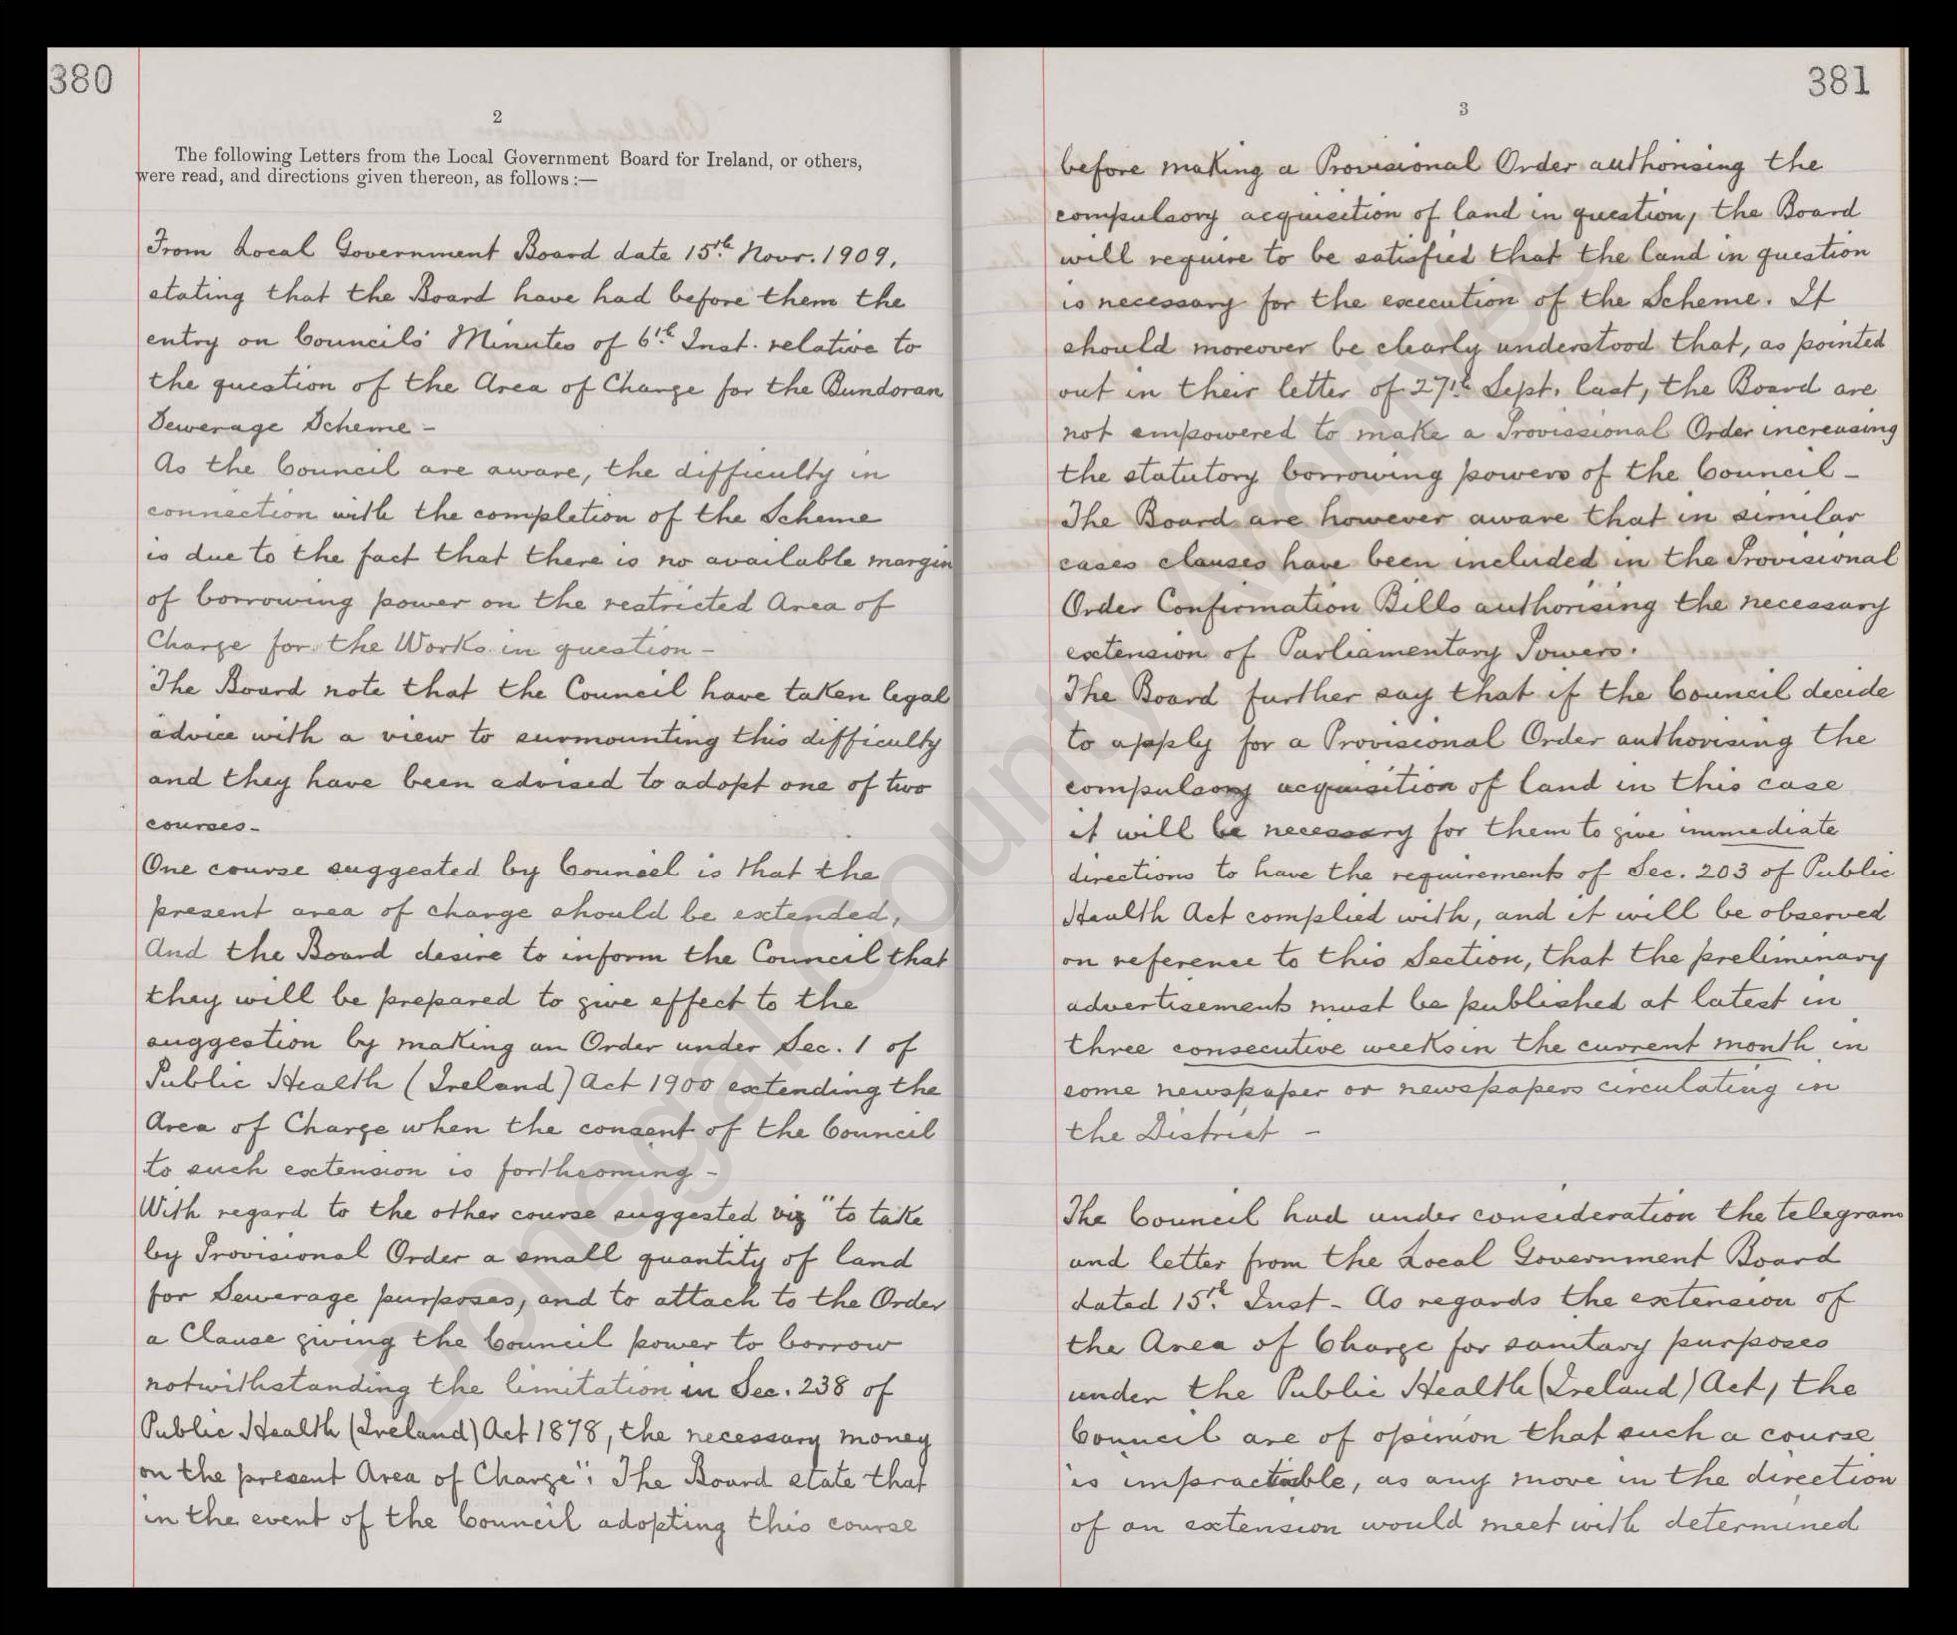 380
2
The following Letters from the Local Government Board for Ireland, or others,
were read, and directions given thereon, as follows :—
From Local Government Board date 15th Novr. 1909,
stating that the Board have had before them the
entry on Councils' Minutes of 6th Inst. relative to
the question of the Area of Charge for the Bundoran
Sewerage Scheme -
As the Council are aware, the difficulty in
connection with the completion of the Scheme
is due to the fact that there is no available margin
of borrowing power on the restricted Area of
Charge for the Works in question -
The Board note that the Council have taken legal
advice with a view to surmounting this difficulty
and they have been advised to adopt one of two
courses -
One course suggested by Counsel is that the
present area of charge should be extended,
And the Board desire to inform the Council that
they will be prepared to give effect to the
suggestion by making an Order under Sec. 1 of
Public Health (Ireland) Act 1900 extending the
Area of Charge when the consent of the Council
to such extension is forthcoming -
With regard to the other course suggested viz "to take
by Provisional Order a small quantity of land
for Sewerage purposes, and to attach to the Order
a Clause giving the Council power to borrow
notwithstanding the limitation in Sec. 238 of
Public Health (Ireland) Act 1878, the necessary money
on the present Area of Charge": The Board state that
in the event of the Council adopting this course
381
3
before making a Provisional Order authorising the
compulsory acquisition of land in question, the Board
will require to be satisfied that the land in question
is necessary for the execution of the Scheme. It
should moreover be clearly understood that, as pointed
out in their letter of 27th Sept. last, the Board are
not empowered to make a Provissional Order increasing
the statutory borrowing powers of the Council -
The Board are however aware that in similar
cases clauses have been included in the Provisional
Order Confirmation Bills authorising the necessary
extension of Parliamentary Powers.
The Board further say that if the Council decide
to apply for a Provisional Order authorising the
compulsory acquisition of land in this case
it will be necessary for them to give immediate
directions to have the requirements of Sec. 203 of Public
Health Act complied with, and it will be observed
on reference to this Section, that the preliminary
advertisements must be published at latest in
three consecutive weeks in the current month in
some newspaper or newspapers circulating in
the District -
The Council had under consideration the telegram
and letter from the Local Government Board
dated 15th Inst - As regards the extension of
the Area of Charge for sanitary purposes
under the Public Health (Ireland) Act, the
Council are of opinion that such a course
is impracticable, as any move in the direction
of an extension would meet with determined
Donegal County Archives